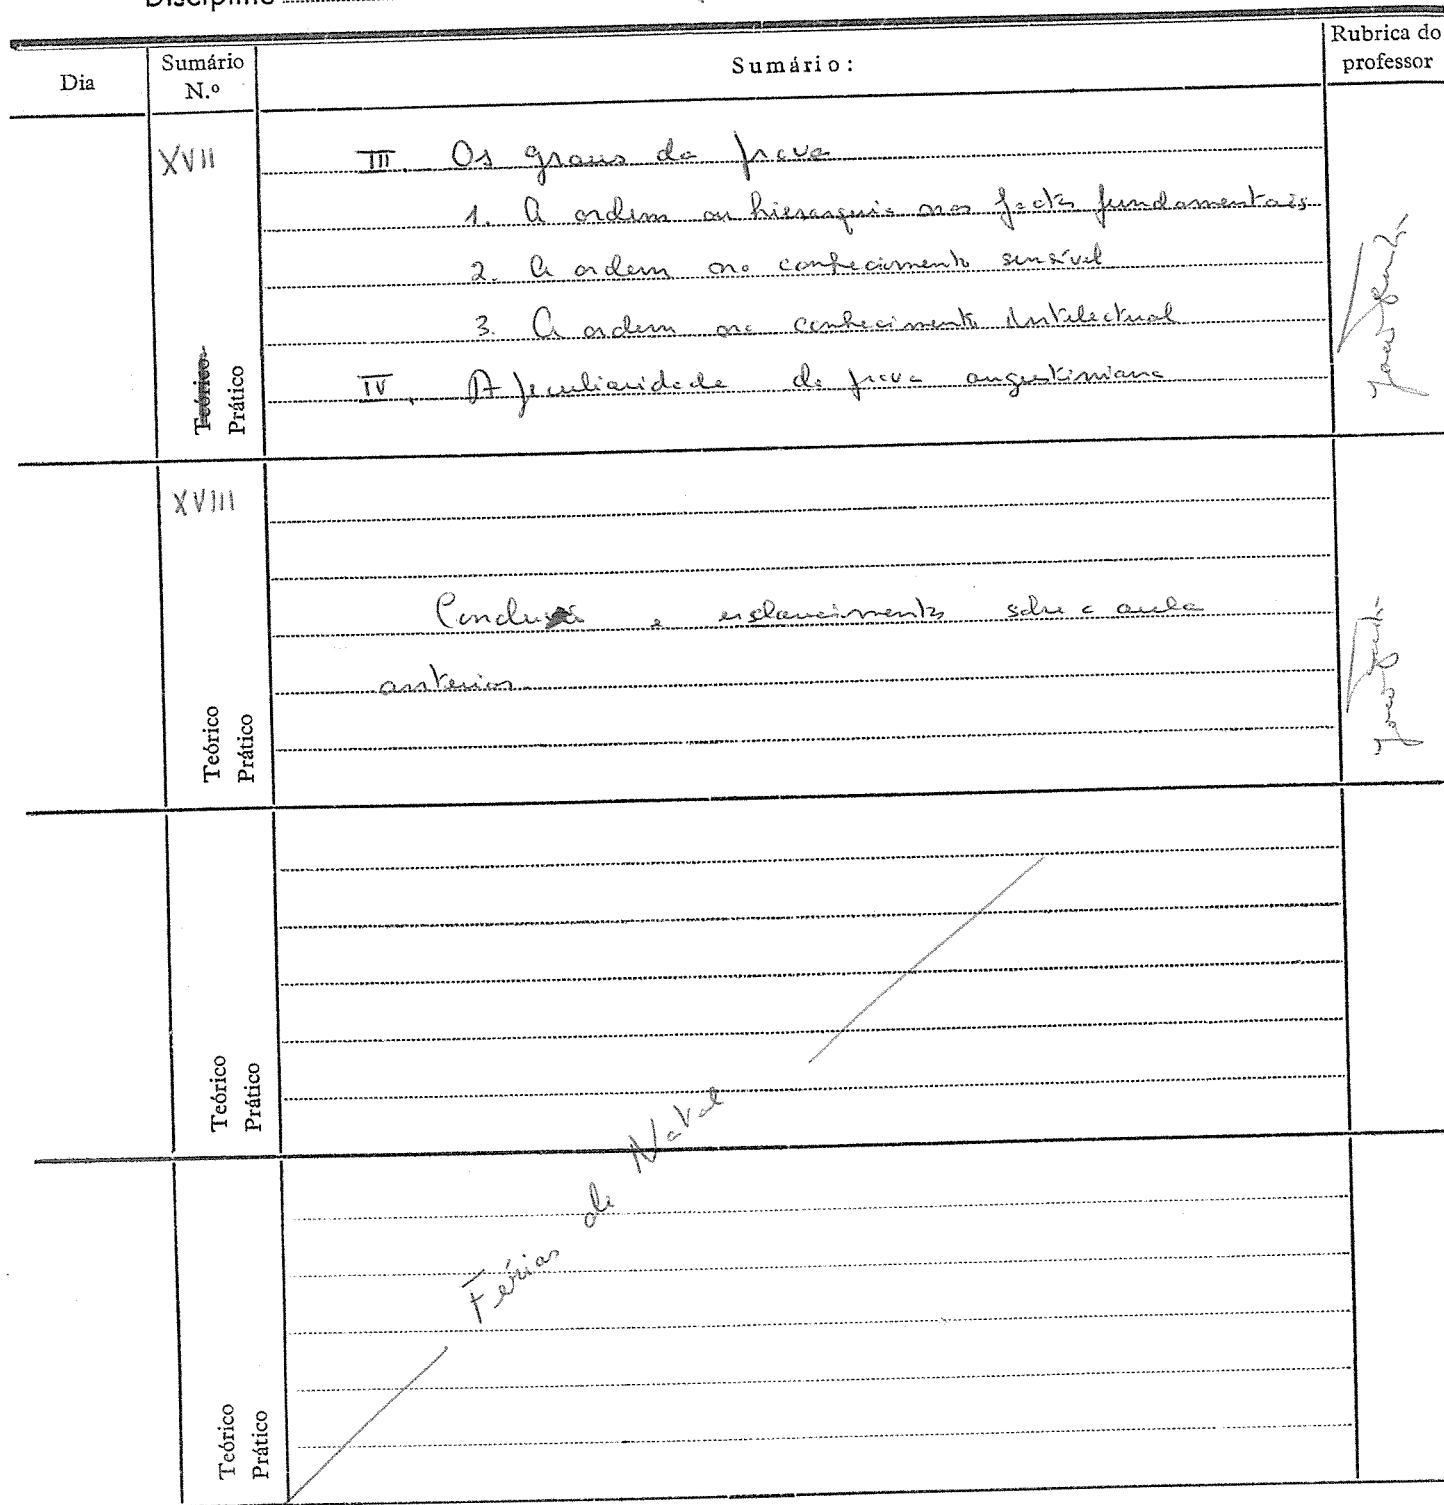 Disciplina
Dia
Sumário N.º
Sumário:
Rubrica do professor
XVII
III. Os graus da prova
1. A ordem ou hierarquia nos factos fundamentais
2. A ordem no conhecimento sensível
3. A ordem no conhecimento intelectual
IV. A peculiaridade da prova augustiniana
Teórico
Prático
XVIII
Conclusão e esclarecimentos sobre a aula
anterior.
Teórico
Prático
Teórico
Prático
Férias de Natal
Teórico
Prático